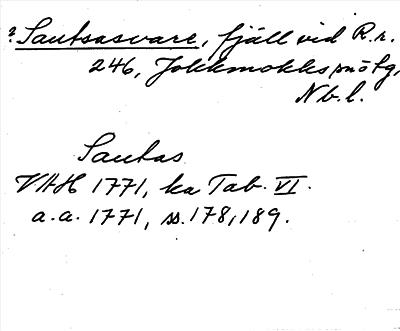 ? Sautsasvare, fjäll vid R.r.
246, Jokkmokks snötg,
Nb.l.
Sautas
VAH 1771, ka Tab. VI.
a.a. 1771, ss. 178, 189.